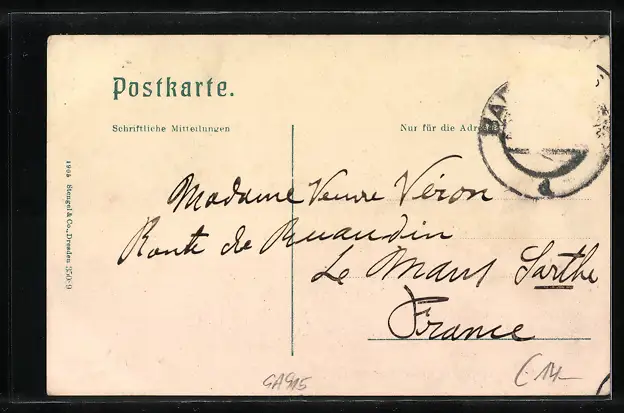 Postkarte.
Schriftliche Mitteilungen
Nur für die
Madame Veuve Véron
Route de Ruaudin
Le Mans Sarthe
France
1905 Stengel & Co., Dresden
GA915